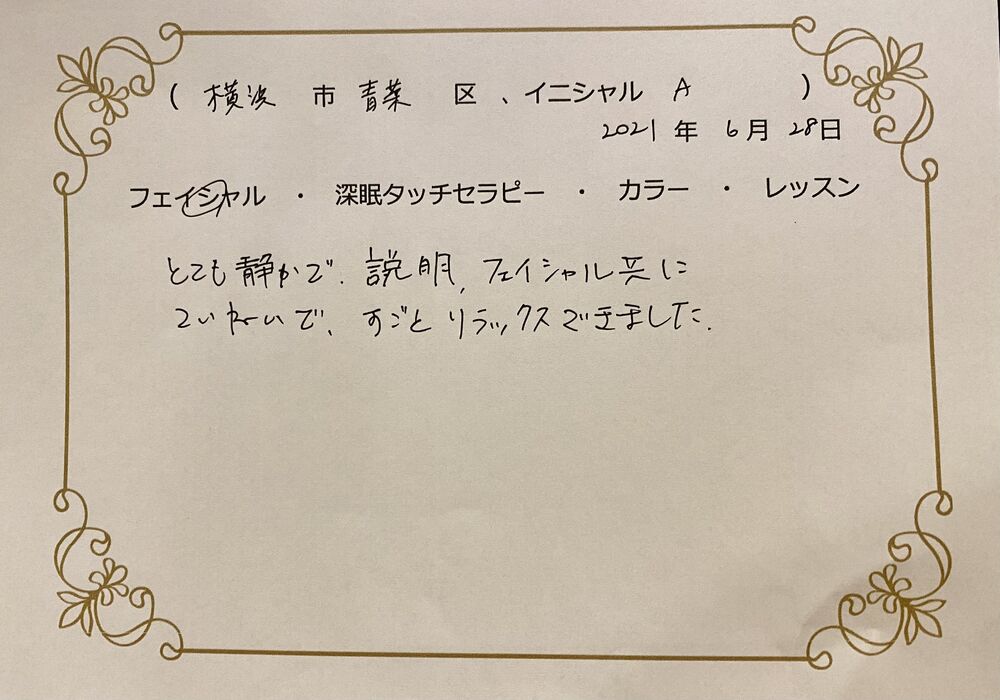 ( 横浜 市 青葉 区 、イニシャル A )
2021 年 6月 28日
フェイシャル ・ 深眠タッチセラピー ・ カラー ・ レッスン
とても静かで、説明、フェイシャル共に
ていねいで、すごくリラックスできました。